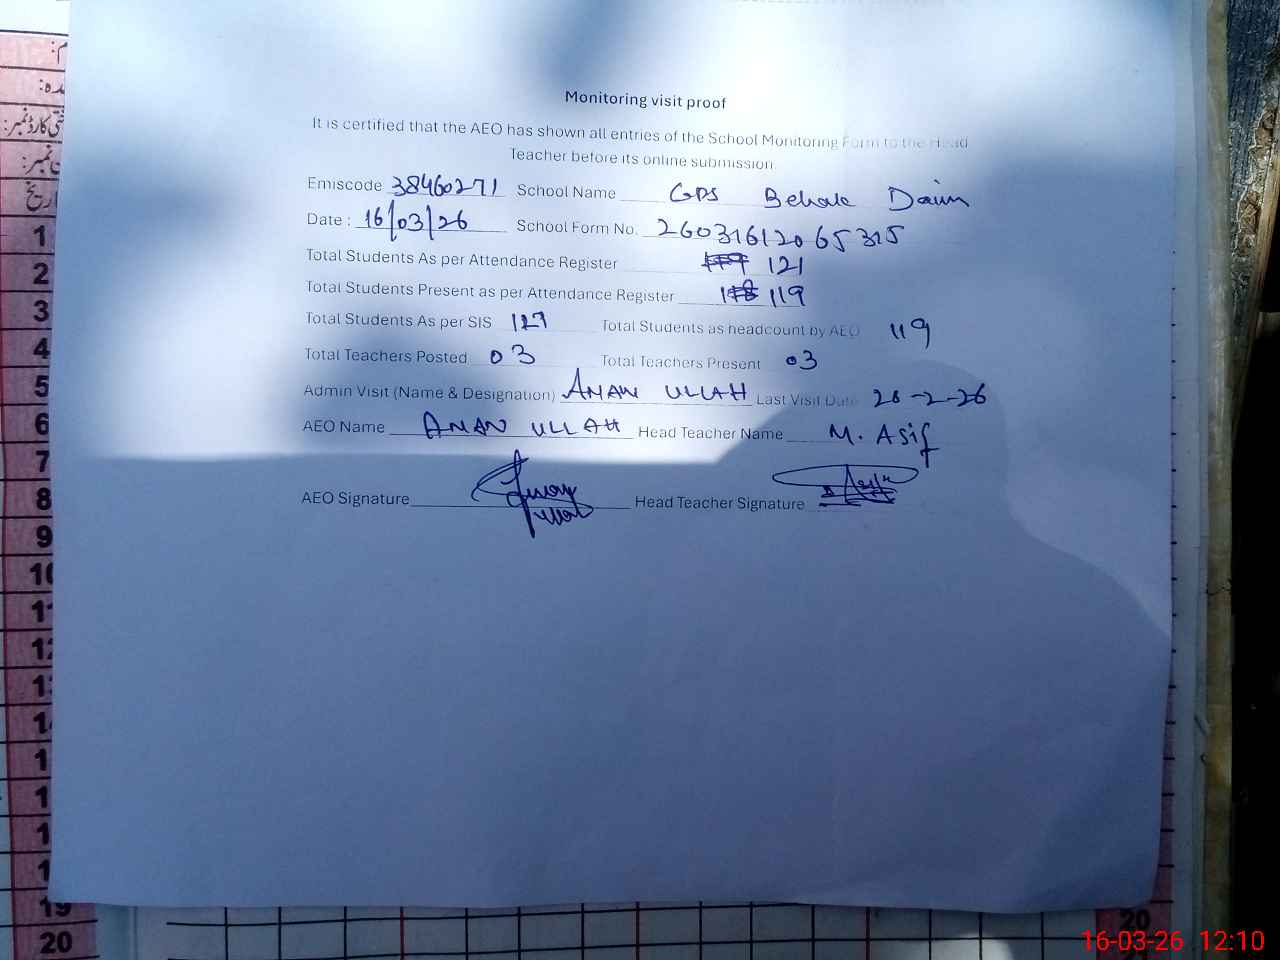 Monitoring visit proof
It is certified that the AEO has shown all entries of the School Monitoring Form to the Head
Teacher before its online submission.
Emiscode 38460271 School Name GPS Behak Daim
Date : 16/03/26 School Form No. 26031612065315
Total Students As per Attendance Register 121
Total Students Present as per Attendance Register 119
Total Students As per SIS 127 Total Students as headcount by AEO 119
Total Teachers Posted 03 Total Teachers Present 03
Admin Visit (Name & Designation) AMAN ULLAH Last Visit Date 28-2-26
AEO Name AMAN ULLAH Head Teacher Name M. Asif
AEO Signature Head Teacher Signature
تاریخ
1
2
3
4
5
6
7
8
9
10
19
20
20
16-03-26 12:10